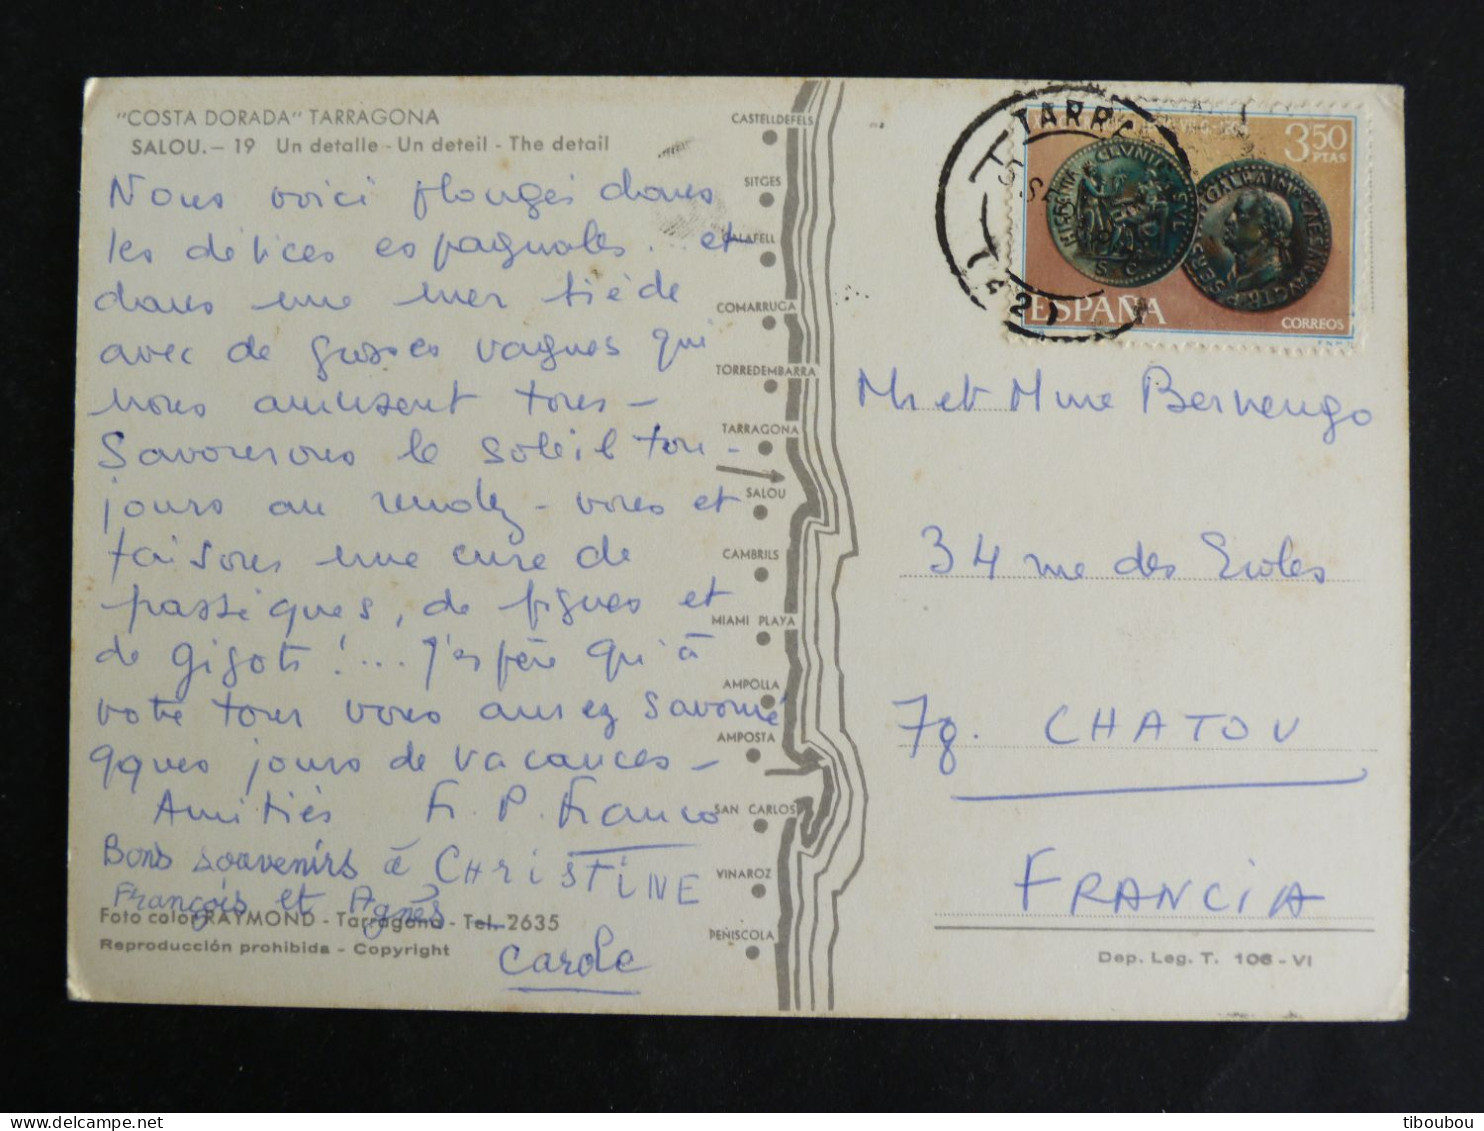 "COSTA DORADA" TARRAGONA
SALOU.- 19 Un detalle - Un deteil - The detail
Nous voici plongés dans
les délices espagnoles. et
dans une mer tiède
avec de grosses vagues qui
nous amusent tous -
Savourons le soleil tou-
jours au rendez-vous et
faisons une cure de
pastèques, de figues et
de gigots !... J'espère qu'à
votre tour vous aurez savouré
qques jours de vacances -
Amitiés Fr. P. Franco
Bons souvenirs à CHRISTINE
François et Agnès
Carole
Foto color RAYMOND - Tarragona - Tel. 2635
Reproducción prohibida - Copyright
CASTELLDEFELS
SITGES
CALAFELL
COMARRUGA
TORREDEMBARRA
TARRAGONA
SALOU
CAMBRILS
MIAMI PLAYA
AMPOLLA
AMPOSTA
SAN CARLOS
VINAROZ
PEÑISCOLA
TARR
3,50
PTAS
HISPANIA CLVNIA SVL
S. C.
ESPAÑA
CORREOS
F.N.M.T.
Mr et Mme Bernengo
34 rue des Ecoles
78. CHATOU
FRANCIA
Dep. Leg. T. 106 - VI
tiboubou